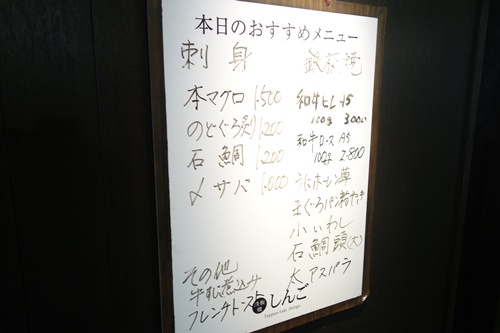 本日のおすすめメニュー
刺身
本マグロ 1.500
のどぐろ炙り 1.200
石鯛 1.200
〆サバ 1.000
鉄板焼
和牛ヒレ A5
100g 3.000
和牛ロース A5
100g 2.800
うにホーレン草
まぐろパン粉やき
小いわし
石鯛頭(大)
太アスパラ
その他
牛すじ煮込み
フレンチトースト
鉄板焼 しんご
Teppan-Yaki Shingo